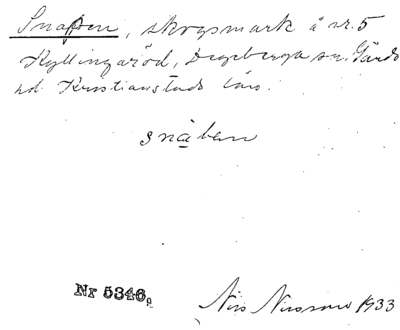 Snapen, skogsmark å nr. 5
Kyllingaröd, Degeberga sn. Gärds
hd. Kristianstads län.
snaban
Nr 5346.
Nils Nilsson 1933